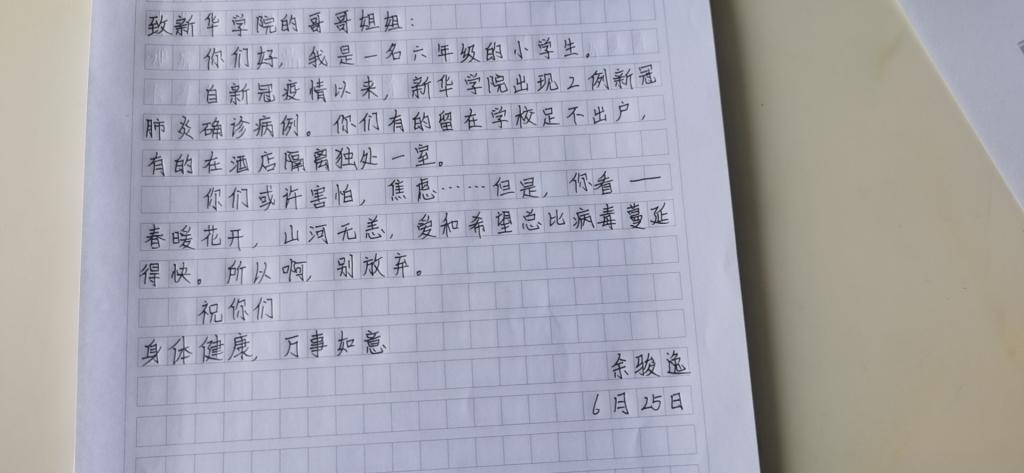 致新华学院的哥哥姐姐：
你们好，我是一名六年级的小学生。
自新冠疫情以来，新华学院出现2例新冠
肺炎确诊病例。你们有的留在学校足不出户，
有的在酒店隔离独处一室。
你们或许害怕，焦虑……但是，你看——
春暖花开，山河无恙，爱和希望总比病毒蔓延
得快。所以啊，别放弃。
祝你们
身体健康，万事如意
余骏逸
6月25日